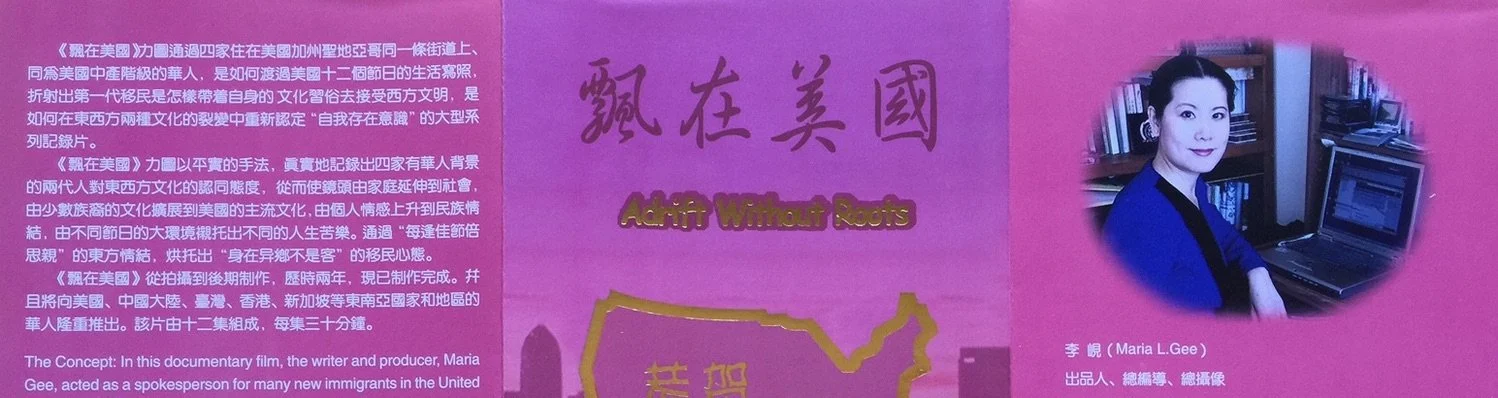 《飄在美國》力圖通過四家住在美國加州聖地亞哥同一條街道上、
同爲美國中產階級的華人，是如何渡過美國十二個節日的生活寫照，
折射出第一代移民是怎樣帶着自身的文化習俗去接受西方文明，是
如何在東西方兩種文化的裂變中重新認定“自我存在意識”的大型系
列記錄片。
《飄在美國》力圖以平實的手法，眞實地記錄出四家有華人背景
的兩代人對東西方文化的認同態度，從而使鏡頭由家庭延伸到社會，
由少數族裔的文化擴展到美國的主流文化，由個人情感上升到民族情
結，由不同節日的大環境襯托出不同的人生苦樂。通過“每逢佳節倍
思親”的東方情結，烘托出“身在异鄉不是客”的移民心態。
《飄在美國》從拍攝到後期制作，歷時兩年，現已制作完成。幷
且將向美國、中國大陸、臺灣、香港、新加坡等東南亞國家和地區的
華人隆重推出。該片由十二集組成，每集三十分鐘。
The Concept: In this documentary film, the writer and producer, Maria
Gee, acted as a spokesperson for many new immigrants in the United
飄在美國
Adrift Without Roots
恭賀
李 峴（Maria L.Gee）
出品人、總編導、總攝像